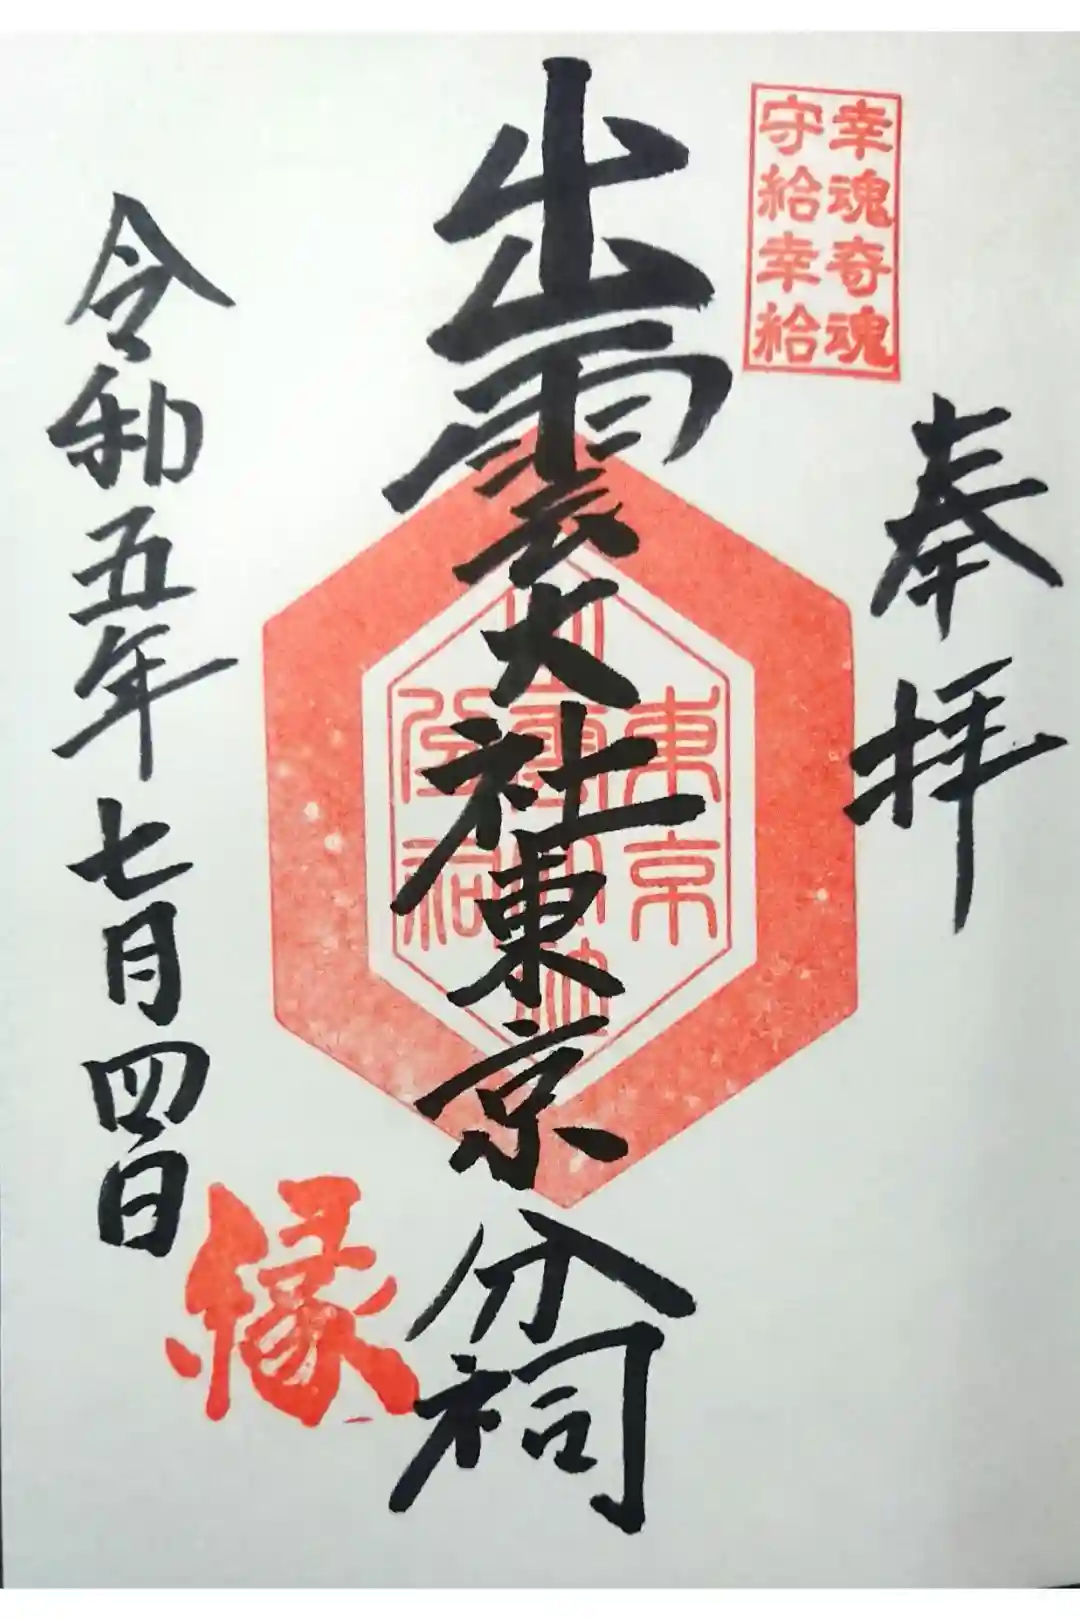 幸魂奇魂
守給幸給
奉拝
出雲大社東京分祠
東京
出雲大社
分祠
令和五年七月四日
縁